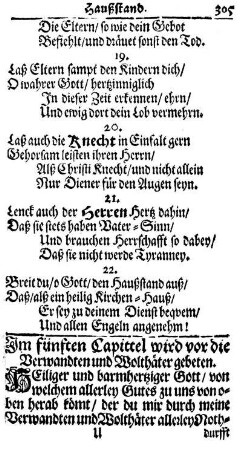 Haußstand. 305
Die Eltern/ so wie dein Gebot
Befiehlt/ und dräuet sonst den Tod.
19.
Laß Eltern sampt den Kindern dich/
O wahrer Gott/ hertzinniglich
In dieser Zeit erkennen/ ehrn/
Und ewig dort dein Lob vermehrn.
20.
Laß auch die Knecht in Einfalt gern
Gehorsam leisten ihren Herrn/
Alß Christi Knecht/ und nicht allein
Nur Diener für den Augen seyn.
21.
Lenck auch der Herren Hertz dahin/
Daß sie stets haben Vater-Sinn/
Und brauchen Herrschafft so dabey/
Daß sie nicht werde Tyranney.
22.
Breit du/ o Gott/ den Haußstand auß/
Daß/ alß ein heilig Kirchen-Hauß/
Er sey zu deinem Dienst beqvem/
Und allen Engeln angenehm!
Im fünften Capittel wird vor die
Verwandten und Wolthäter gebeten.
Heiliger und barmhertziger Gott/ von
welchem allerley Gutes zu uns von o-
ben herab kömt/ der du mir durch meine
Verwandten und Wolthäter allerley Noth-
U durfft